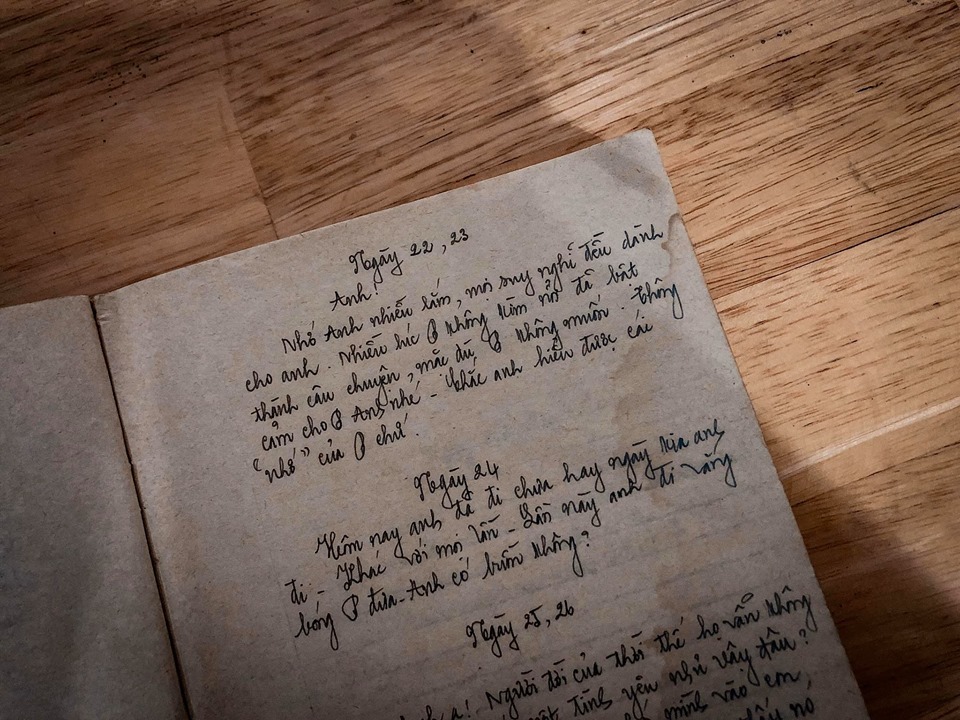 Ngày 22, 23
Anh!
Nhớ Anh nhiều lắm, mọi suy nghĩ đều dành
cho anh. Nhiều lúc P không kìm nổi đã bật
thành câu chuyện, mặc dù P không muốn. Thông
cảm cho P Anh nhé - chắc anh hiểu được cái
"nhớ" của P chứ.
Ngày 24
Hôm nay anh đã đi chưa hay ngày kia anh
đi - Khác với mọi lần - Lần này anh đi vắng
bóng P đưa - Anh có buồn không?
Ngày 25, 26
a! Người đời của thời thế họ vẫn không
tình yêu như vậy đâu?
mình vào em,
nó